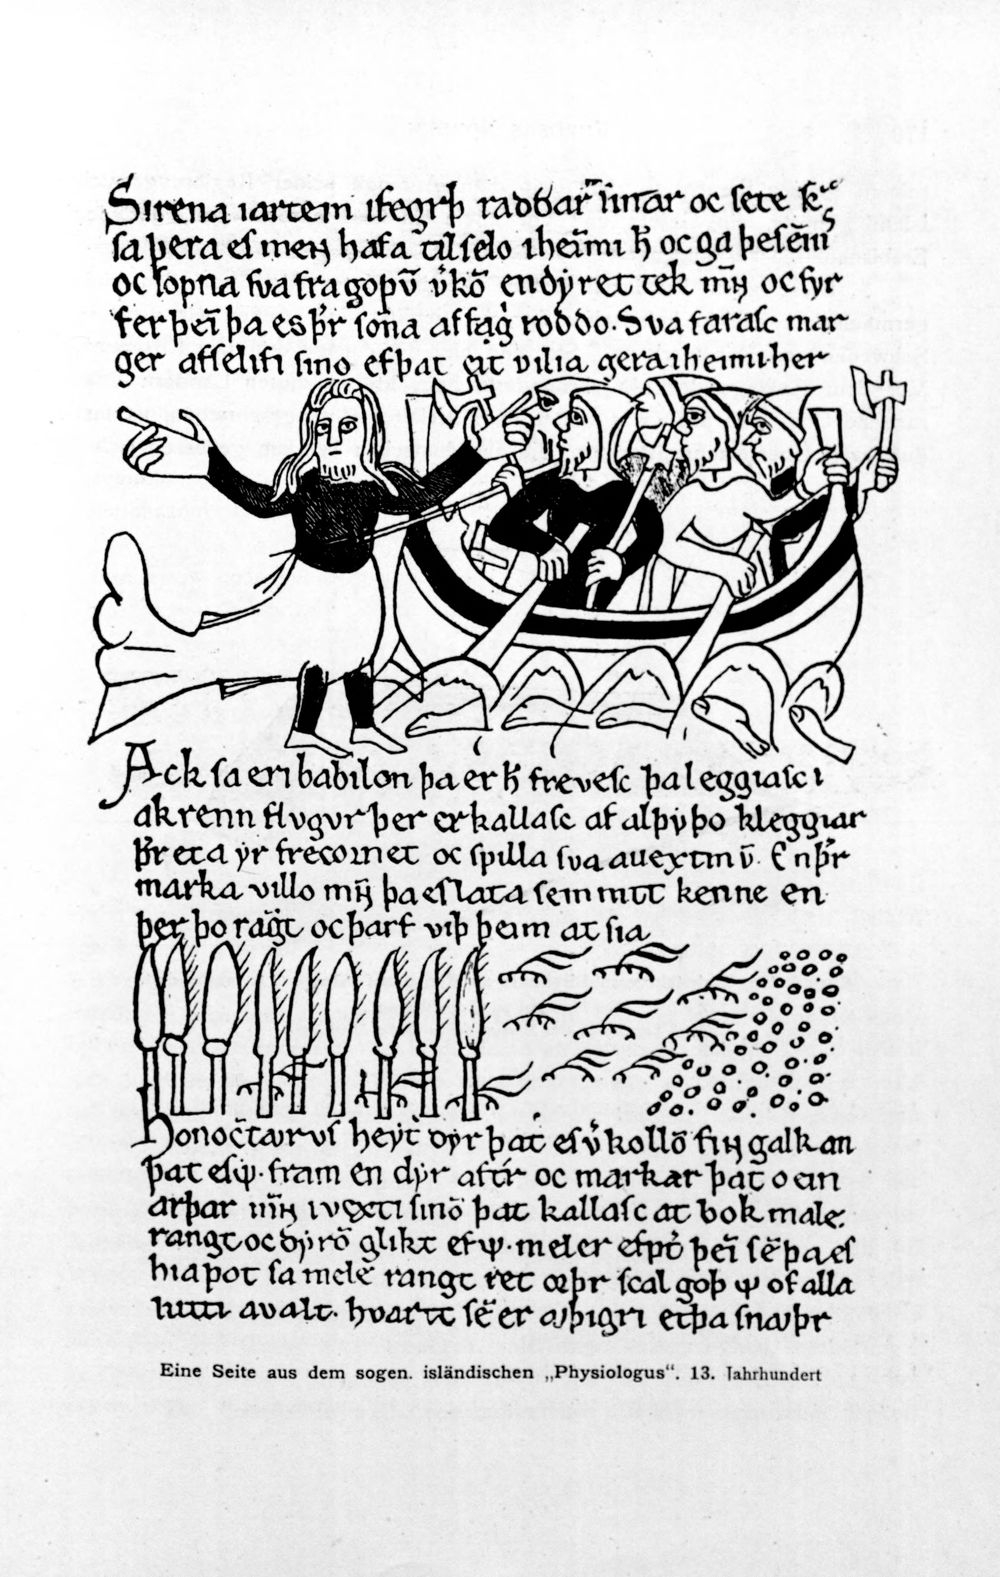 Sirena iartein ifegrþ raddar sinnar oc sete
sa þera es menn hafa til selo iheimi oc ga þes ein
oc sopna sva fra goþū en dyret tek oc fyr
fer þeī þa es sofna af fagr roddo. Sva farasc mar
ger af selifi sino ef þat eit vilia gera iheimi. her
Ack sa eri babilon þa er frevesc þa leggiasc i
akrenn flvgvr þer er kallasc af alþyþo kleggiar
eta yr frecornet oc spilla sva auextinū. En þr
marka villo þa es lata sem mitt kenne en
þer þo rangt oc þarf viþ þeim at sia
Honoctavrvs heyt dyr þat es kollō finngalkan
þat es ψ. fram en dyr aftr oc markar þat o ein
arþar i vexti sinō þat kallasc at bok male.
rangt oc dyrō glikt ef ψ. meler þeī sē þa es
hia þot sa mele rangt ret œþr scal goþ ψ of alla
luti avalt. hvartt sē er avþigri eþa snavþr
Eine Seite aus dem sogen. isländischen „Physiologus“. 13. Jahrhundert